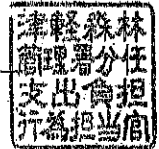 津軽森林
管理署分任
支出負担
行為担当官